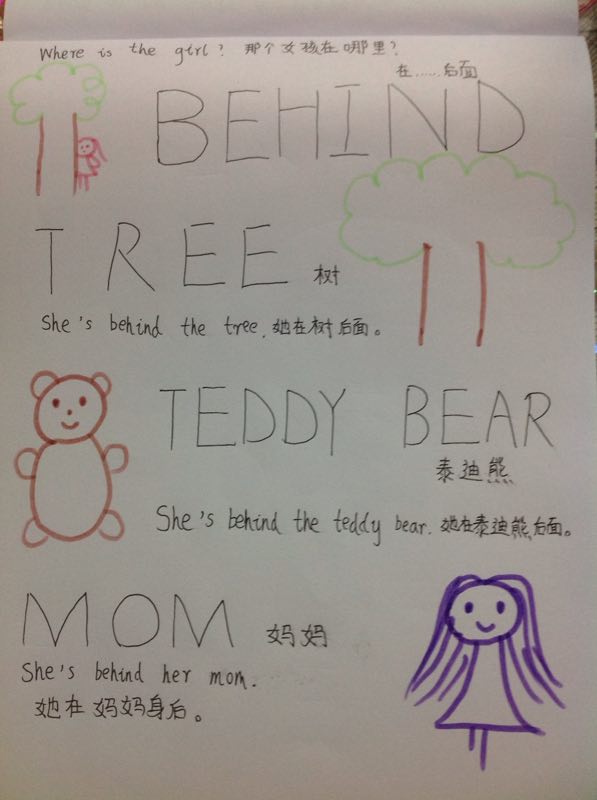 Where is the girl? 那个女孩在哪里?
在……后面
BEHIND
TREE 树
She's behind the tree. 她在树后面。
TEDDY BEAR
泰迪熊
She's behind the teddy bear. 她在泰迪熊后面。
MOM 妈妈
She's behind her mom.
她在妈妈身后。